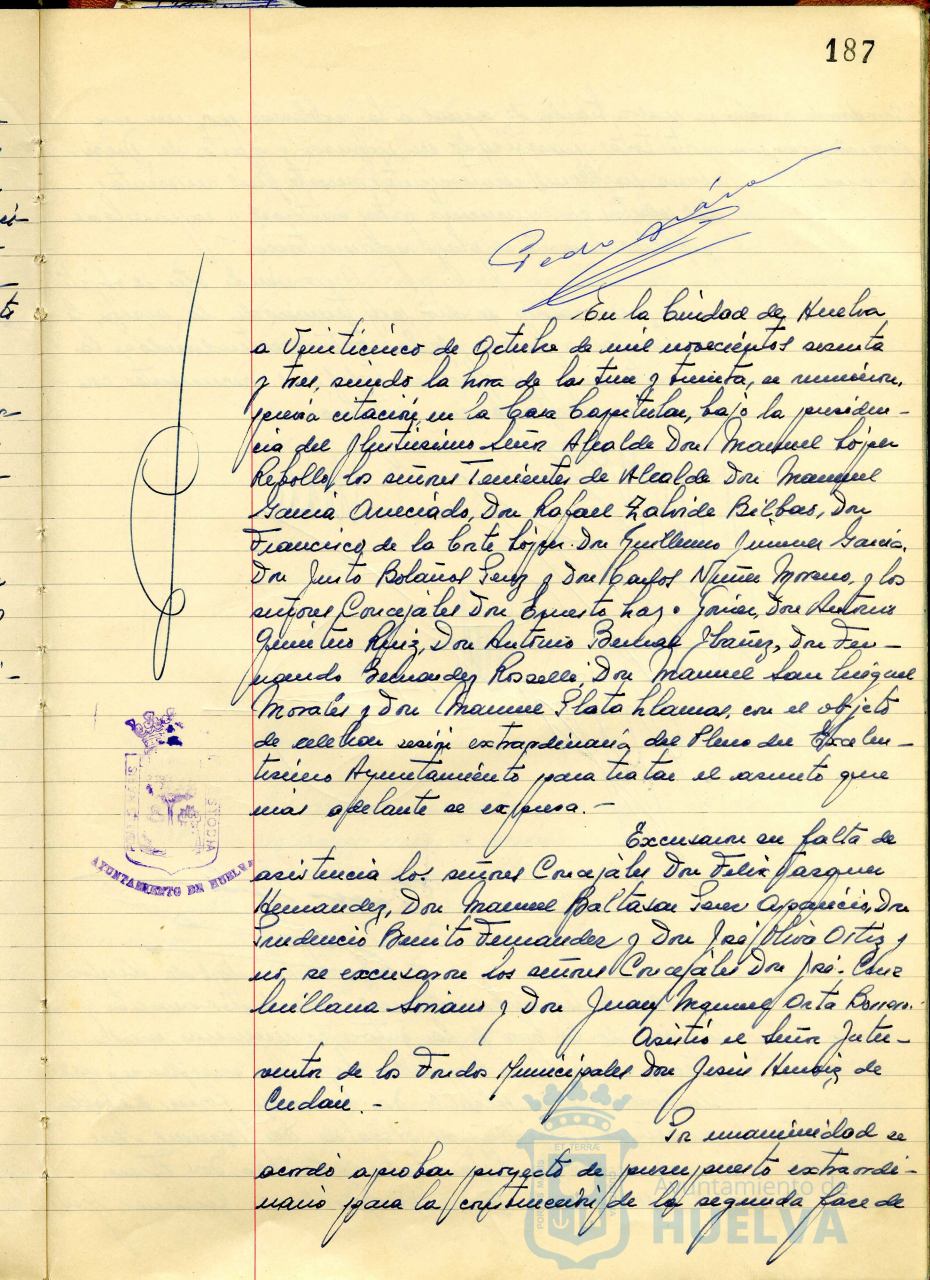 187
Pedro
En la Ciudad de Huelva
a Veinticinco de Octubre de mil novecientos sesenta
y tres, siendo la hora de las trece y treinta, se reunieron,
previa citación, en la Casa Capitular, bajo la presiden-
cia del Ilustrisimo Señor Alcalde Don Manuel López
Rebollo, los señores Tenientes de Alcalde Don Manuel
Garcia Don Rafael Zalvide Bilbao, Don
Francisco de la Corte López. Don Guillermo Jimenez Garcia,
Don Justo Bolaños Perez y Don Carlos Nuñez Moreno, y los
señores Concejales Don Ernesto Lazo Don Antonio
Ruiz, Don Antonio Bernal Ibañez, Don Fer-
nando Bernandez Rosselli, Don Manuel San Miguel
Morales y Don Manuel Plata Llamas, con el objeto
de celebrar sesión extraordinaria del Pleno del Excelen-
tisimo Ayuntamiento para tratar el asunto que
más adelante se expresa. -
Excusaron su falta de
asistencia los señores Concejales Don Felix Vazquez
Hernandez, Don Manuel Baltasar Perez Aparicio, Don
Prudencio Benito Fernandez y Don José Oliva Ortiz y
no se excusaron los señores Concejales Don José Cruz
Millana Soriano y Don Juan Manuel Orta Borrero.
Asistió el Señor Inter-
ventor de los Fondos Municipales Don Jesús de
Por unanimidad se
acordó aprobar proyecto de presupuesto extraordi-
nario para la construcción de la segunda fase de
AYUNTAMIENTO DE HUELVA
Ayuntamiento de
HUELVA